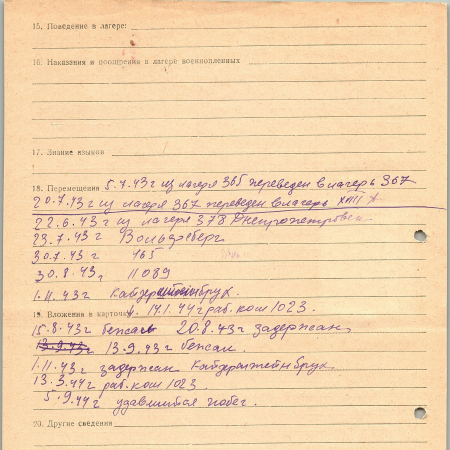 15. Поведение в лагере:
16. Наказания и поощрения в лагере военнопленных
17. Знание языков
18. Перемещения 5.7.43 г из лагеря 365 переведен в лагерь 367
20.7.43 г из лагеря 367 переведен в лагерь XIII
22.6.43 г из лагеря 378 Днепропетровск
23.7.43 г
30.7.43 г 465
30.8.43 г 11089
1.11.43 г Кайзерштейнбрух.
19. Вложения в карточку 14.1.44 г раб. ком 1023.
15.8.43 г бежал 20.8.43 г задержан,
13.9.43 г 13.9.43 г бежал.
1.11.43 г задержан Кайзерштейнбрух.
13.3.44 г раб. ком 1023.
5.9.44 г удавшийся побег.
20. Другие сведения